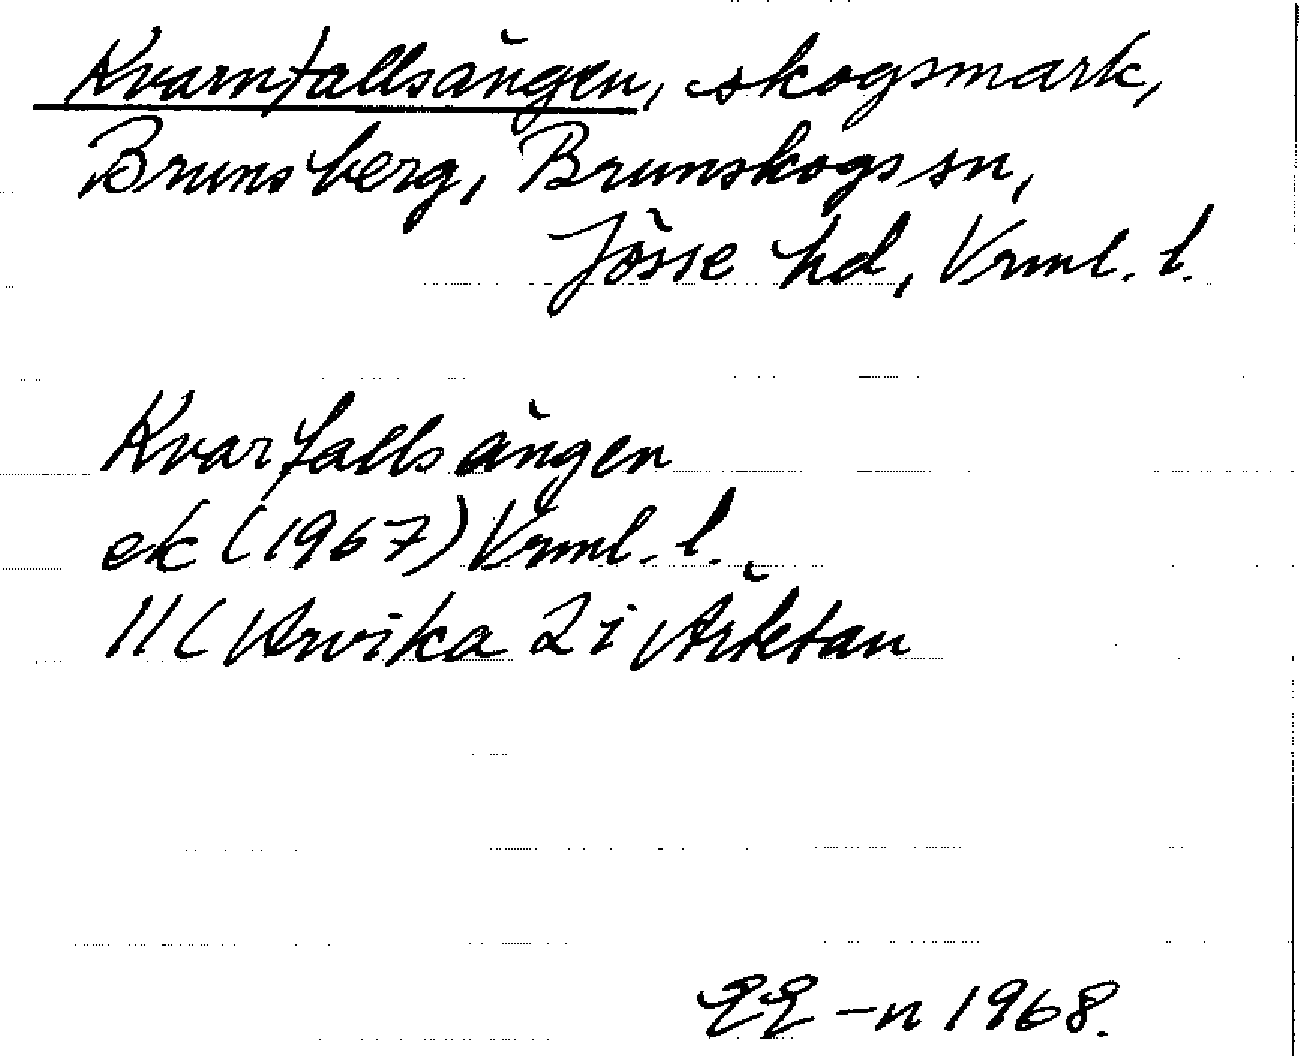 Kvarnfallsängen, skogsmark,
Brunsberg, Brunskogs sn,
Jösse hd, Vrml. l.
Kvarfallsängen
ek (1967) Vrml. l.
11C Arvika 2i Ärtetan
EE-n 1968.